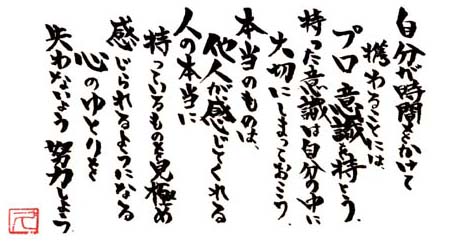 自分が時間をかけて
携わることには、
プロ意識を持とう。
持った意識は自分の中に
大切にしまっておこう、
本当のものは、
他人が感じてくれる
人の本当に
持っているものを見極め
感じられるようになる
心のゆとりを
失わないよう 努力しよう